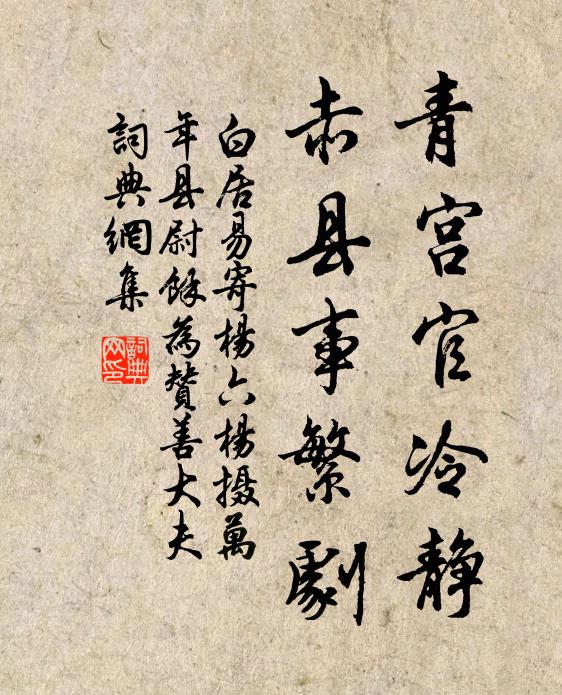 青宫官冷静
赤县事繁劇
白居易寄楊六楊摄萬
年县尉餘為贊善大夫
詞典網集
詞典
网印